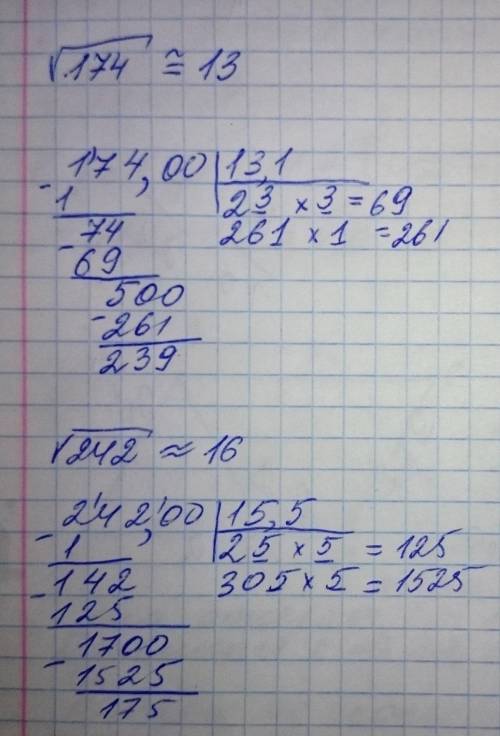 √174 ≅ 13
1'74,00 | 13,1
- 1 | 23 × 3 = 69
74 | 261 × 1 = 261
- 69
500
- 261
239
√242 ≈ 16
2'42,'00 | 15,5
- 1 | 25 × 5 = 125
142 | 305 × 5 = 1525
- 125
1700
- 1525
175